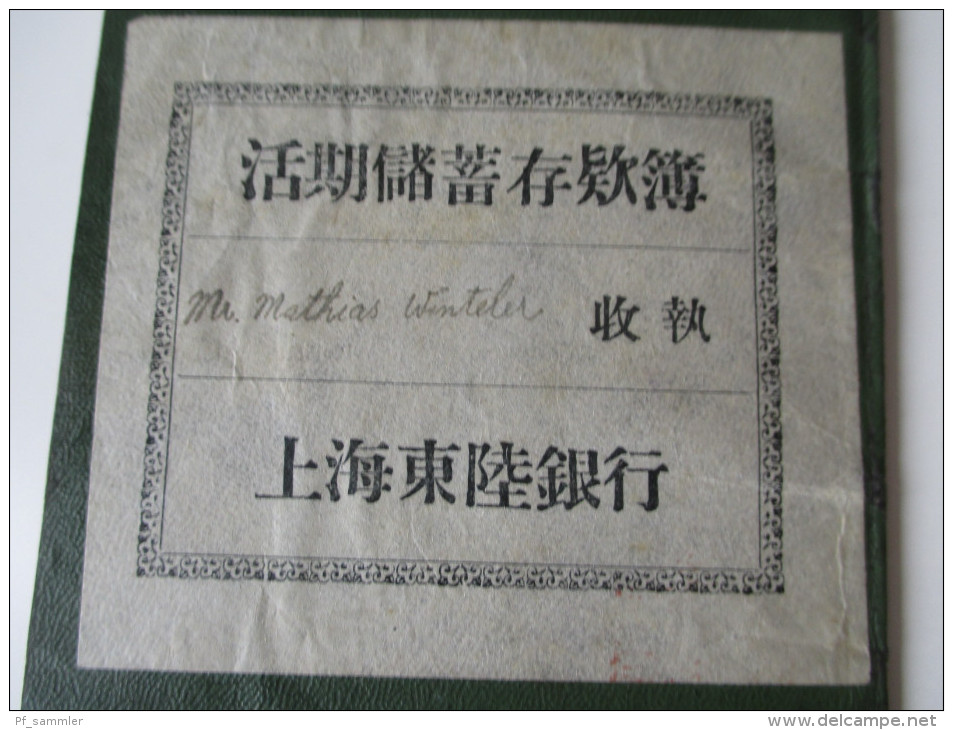 活期儲蓄存欵簿
Mr. Mathias Winteler 收執
上海東陸銀行
Pf_sammler
www.delcampe.net